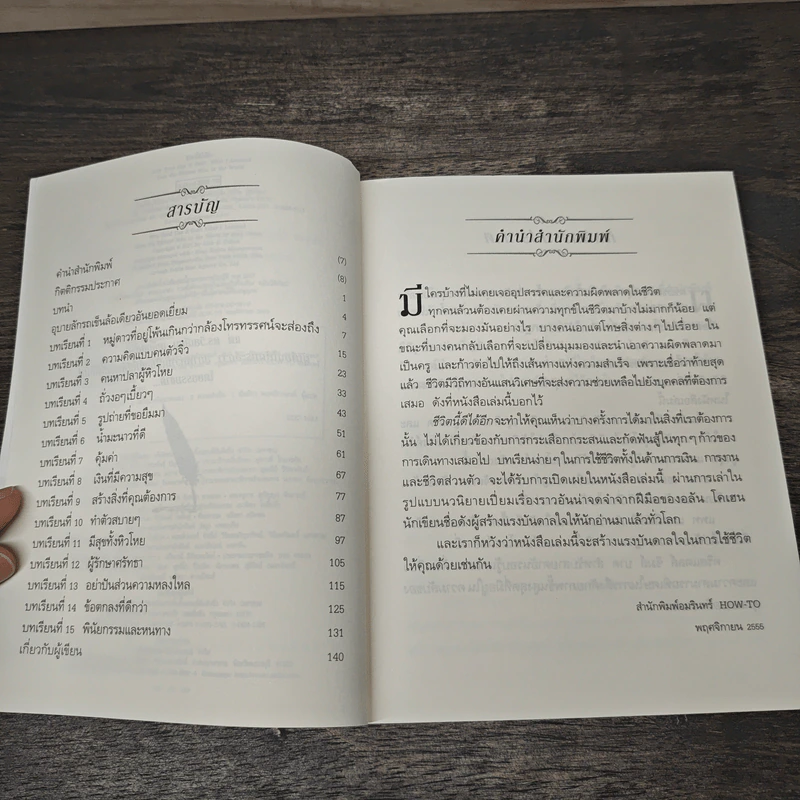 สารบัญ
คำนำสำนักพิมพ์ (7)
กิตติกรรมประกาศ (8)
บทนำ 1
อุบายลักรถเข็นล้อเดียวอันยอดเยี่ยม 4
บทเรียนที่ 1 หมู่ดาวที่อยู่โพ้นเกินกว่ากล้องโทรทรรศน์จะส่องถึง 7
บทเรียนที่ 2 ความคิดแบบคนตัวจิ๋ว 15
บทเรียนที่ 3 คนหาปลาผู้หิวโหย 23
บทเรียนที่ 4 ถั่วงอๆเบี้ยวๆ 33
บทเรียนที่ 5 รูปถ่ายที่ขอยืมมา 43
บทเรียนที่ 6 น้ำมะนาวที่ดี 51
บทเรียนที่ 7 คุ้มค่า 61
บทเรียนที่ 8 เงินที่มีความสุข 67
บทเรียนที่ 9 สร้างสิ่งที่คุณต้องการ 77
บทเรียนที่ 10 ทำตัวสบายๆ 87
บทเรียนที่ 11 มีสุขทั้งหิวโหย 97
บทเรียนที่ 12 ผู้รักษาศรัทธา 105
บทเรียนที่ 13 อย่าปันส่วนความหลงใหล 115
บทเรียนที่ 14 ข้อตกลงที่ดีกว่า 125
บทเรียนที่ 15 พินัยกรรมและหนทาง 131
เกี่ยวกับผู้เขียน 140
คำนำสำนักพิมพ์
มีใครบ้างที่ไม่เคยเจออุปสรรคและความผิดพลาดในชีวิต
ทุกคนล้วนต้องเคยผ่านความทุกข์ในชีวิตมาบ้างไม่มากก็น้อย แต่
คุณเลือกที่จะมองมันอย่างไร บางคนเอาแต่โทษสิ่งต่างๆไปเรื่อย ใน
ขณะที่บางคนกลับเลือกที่จะเปลี่ยนมุมมองและนำเอาความผิดพลาดมา
เป็นครู และก้าวต่อไปให้ถึงเส้นทางแห่งความสำเร็จ เพราะเชื่อว่าท้ายสุด
แล้ว ชีวิตมีวิถีทางอันแสนวิเศษที่จะส่งความช่วยเหลือไปยังบุคคลที่ต้องการ
เสมอ ดังที่หนังสือเล่มนี้บอกไว้
ชีวิตนี้ดีได้อีก จะทำให้คุณเห็นว่าบางครั้งการได้มาในสิ่งที่เราต้องการ
นั้น ไม่ได้เกี่ยวข้องกับการกระเสือกกระสนและกัดฟันสู้ในทุกๆก้าวของ
การเดินทางเสมอไป บทเรียนง่ายๆในการใช้ชีวิตทั้งในด้านการเงิน การงาน
และชีวิตส่วนตัว จะได้รับการเปิดเผยในหนังสือเล่มนี้ ผ่านการเล่าใน
รูปแบบนวนิยายเปี่ยมเรื่องราวอันน่าจดจำจากฝีมือของอลัน โคเฮน
นักเขียนชื่อดังผู้สร้างแรงบันดาลใจให้นักอ่านมาแล้วทั่วโลก
และเราก็หวังว่าหนังสือเล่มนี้จะสร้างแรงบันดาลใจในการใช้ชีวิต
ให้คุณด้วยเช่นกัน
สำนักพิมพ์อมรินทร์ HOW-TO
พฤศจิกายน 2555